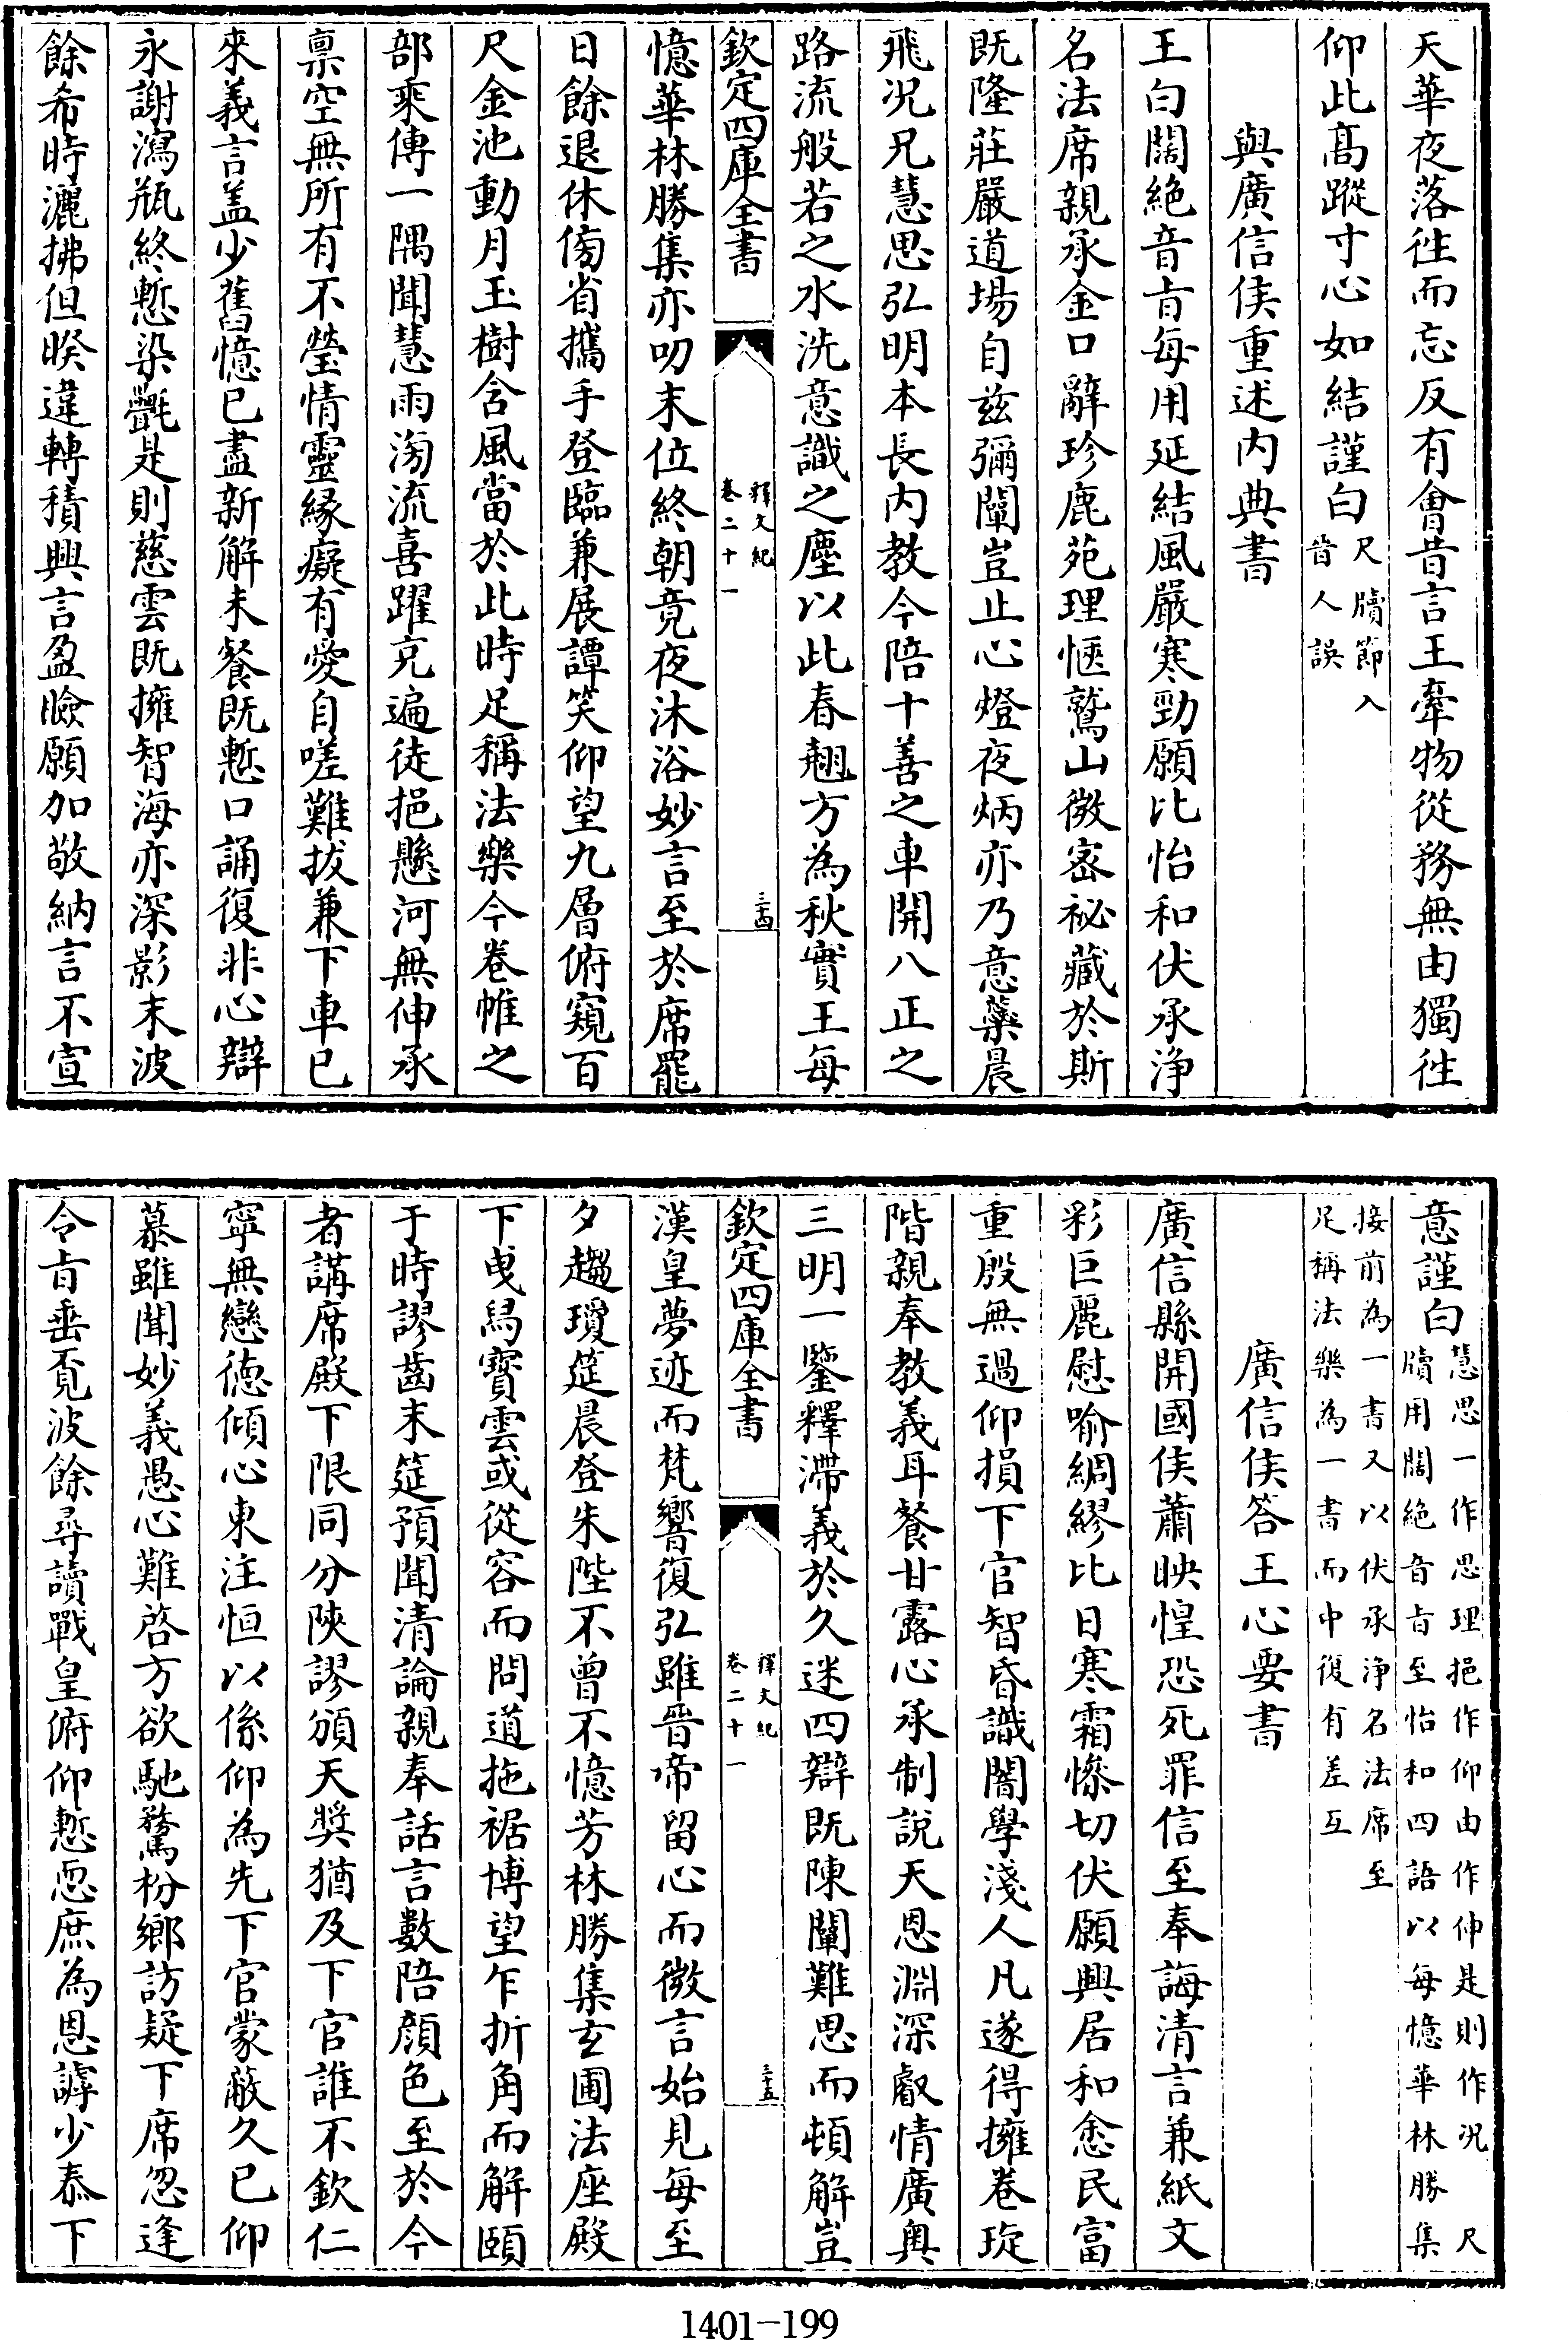 天華夜落徃而忘反有會昔言王牽物從務無由獨徃
仰此髙蹤寸心如結謹白尺牘節入
昔人誤
與廣信侯重述内典書
王白闊絶音旨每用延結風嚴寒勁願比怡和伏承浄
名法席親承金口辭珍鹿苑理愜鷲山微宻祕藏於斯
既隆莊嚴道場自兹彌闡豈止心燈夜炳亦乃意蘂晨
飛况兄慧思弘明本長内教今陪十善之車開八正之
路流般若之水洗意識之塵以此春翹方為秋實王每
欽定四庫全書
釋文紀
卷二十一
三十四
憶華林勝集亦叨末位終朝竟夜沐浴妙言至於席罷
日餘退休傍省攜手登臨兼展譚笑仰望九層俯窺百
尺金池動月玉樹含風當於此時足稱法樂今卷帷之
部乘傳一隅聞慧雨滂流喜躍充遍徒挹懸河無伸承
禀空無所有不瑩情靈縁癡有愛自嗟難拔兼下車已
來義言盖少舊憶已盡新解未餐既慙口誦復非心辯
永謝瀉瓶終慙染㲲是則慈雲既擁智海亦深影末波
餘希時灑拂但暌違轉積興言盈臉願加敬納言不宣
意謹白慧思一作思理挹作仰由作伸是則作况 尺
牘用闊絶音旨至怡和四語以每憶華林勝集
接前為一書又以伏承浄名法席至
足稱法樂為一書而中復有差互
廣信侯答王心要書
廣信縣開國侯蕭映惶恐死罪信至奉誨清言兼紙文
彩巨麗慰喻綢繆比日寒霜慘切伏願興居和悆民富
重殷無過仰損下官智昏識闇學淺人凡遂得擁卷琁
階親奉教義耳餐甘露心承制說天恩淵深叡情廣奥
三明一鑒釋滯義於久迷四辯既陳闡難思而頓解豈
欽定四庫全書
釋文紀
卷二十一
三十五
漢皇夢迹而梵響復弘雖晉帝留心而微言始見每至
夕趨瓊筵晨登朱陛不曾不憶芳林勝集玄圃法座殿
下曵舄寳雲或從容而問道拖裾博望乍折角而解頤
于時謬齒末筵預聞清論親奉話言數陪顔色至於今
者講席殿下限同分陜謬頒天奬猶及下官誰不欽仁
寧無戀徳傾心東注恒以係仰為先下官蒙蔽久已仰
慕雖聞妙義愚心難啓方欲馳騖枌鄉訪疑下席忽逢
令旨垂覔波餘尋讀戰皇俯仰慙恧庶為恩謼少泰下
1401-199